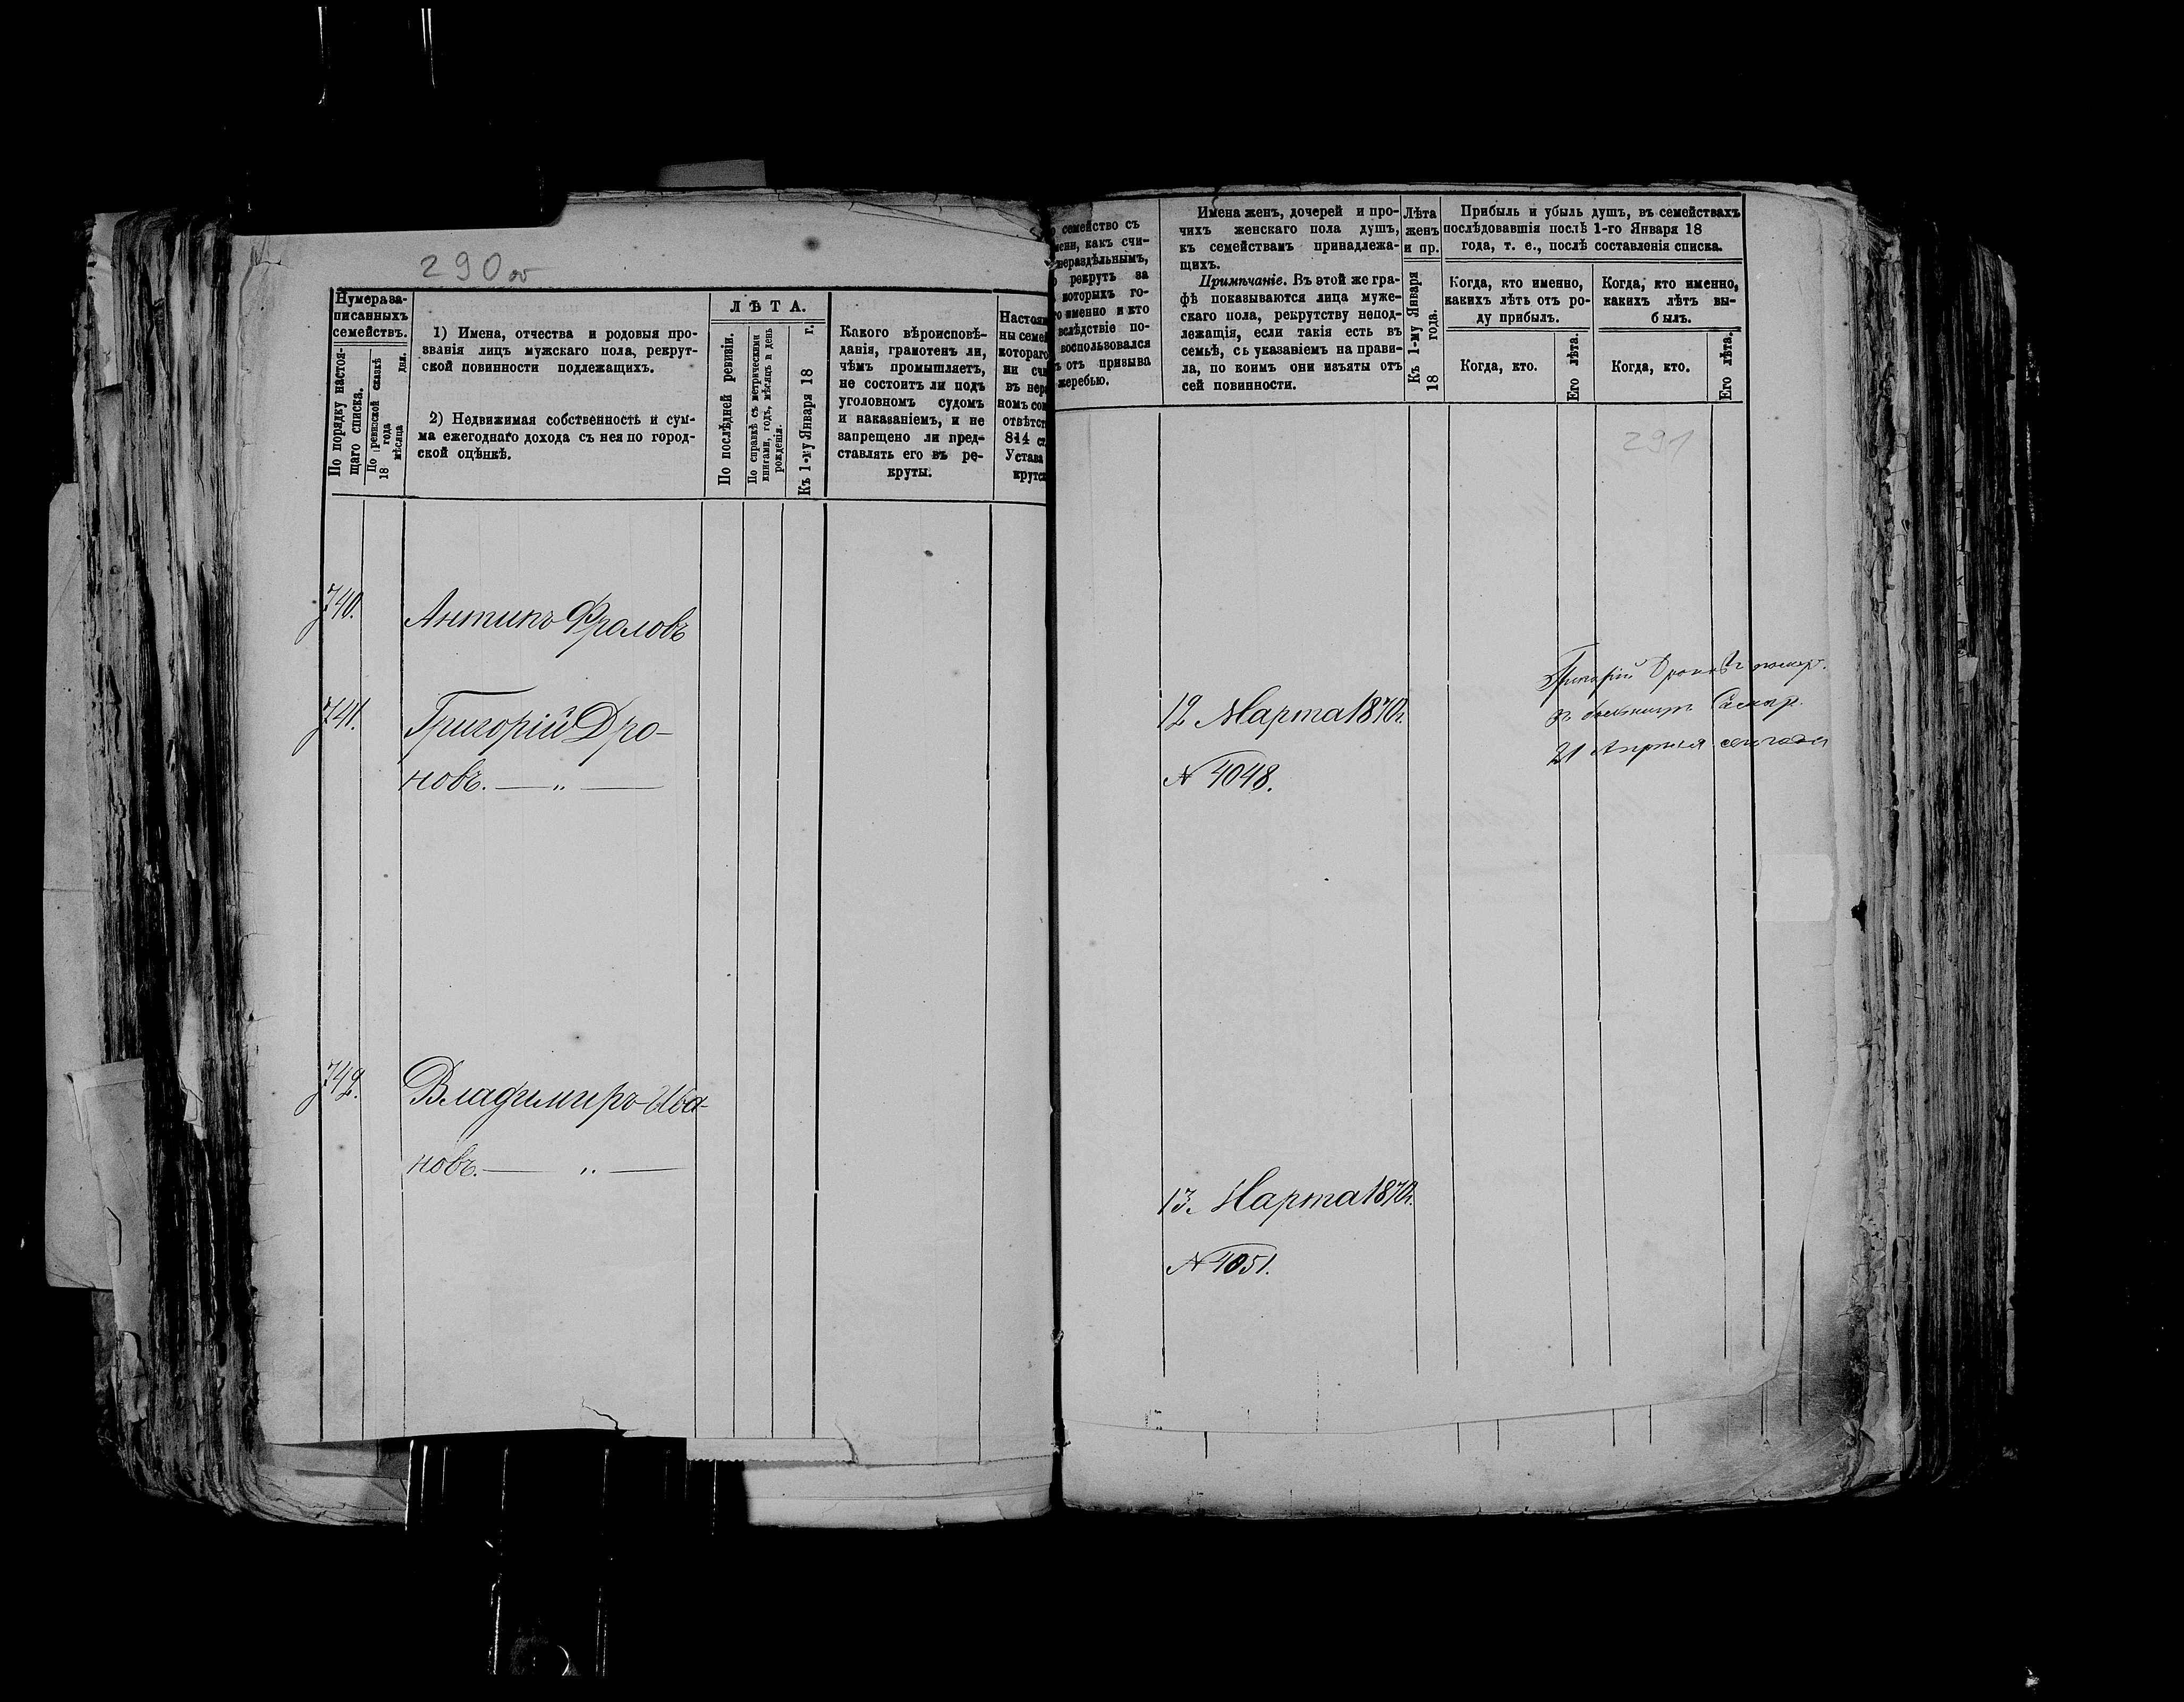 290 об
Нумера за-
писанныхъ
семействъ.
По порядку настоя-
щаго списка.
По ревизской сказкѣ
18 года
мѣсяца дня.
1) Имена, отчества и родовыя про-
званія лицъ мужскаго пола, рекрут-
ской повинности подлежащихъ.
2) Недвижимая собственность и сум-
ма ежегоднаго дохода съ нея по город-
ской оцѣнкѣ.
ЛѢТА.
По послѣдней ревизіи.
По справкѣ съ метрическими
книгами, годъ, мѣсяцъ и день
рожденія.
Къ 1-му Января 18 г.
Какого вѣроисповѣ-
данія, грамотенъ ли,
чѣмъ промышляетъ,
не состоитъ ли подъ
уголовномъ судомъ
и наказаніемъ, и не
запрещено ли пред-
ставлять его въ ре-
круты.
Настоя
ны семе
котораго
ни счи
въ нер
номъ со
отвѣтст
814 ст
Устава
крутс
740. Антипъ Фроловъ
741. Григорій Дро-
новъ. — „ —
742. Владимиръ Ива-
новъ. — „ —
семейство съ
мени, какъ счи-
нераздѣльнымъ,
рекрутъ за
которыхъ го-
именно и кто
вслѣдствіе по-
воспользовался
отъ призыва
жеребью.
Имена женъ, дочерей и про-
чихъ женскаго пола душъ,
къ семействамъ принадлежа-
щихъ.
Примѣчаніе. Въ этой же гра-
фѣ показываются лица муже-
скаго пола, рекрутству непод-
лежащія, если такія есть въ
семьѣ, съ указаніемъ на прави-
ла, по коимъ они изъяты отъ
сей повинности.
Лѣта
женъ
и пр.
Къ 1-му Января
18 года.
Прибыль и убыль душъ, въ семействахъ
послѣдовавшія послѣ 1-го Января 18
года, т. е., послѣ составленія списка.
Когда, кто именно,
какихъ лѣтъ отъ ро-
ду прибылъ.
Когда, кто.
Его лѣта.
Когда, кто именно,
какихъ лѣтъ вы-
былъ.
Когда, кто.
Его лѣта.
291
12 Марта 1870г.
№ 4048.
Григорій Дроновъ
21 Апрѣля
13. Марта 1870г.
№ 4051.